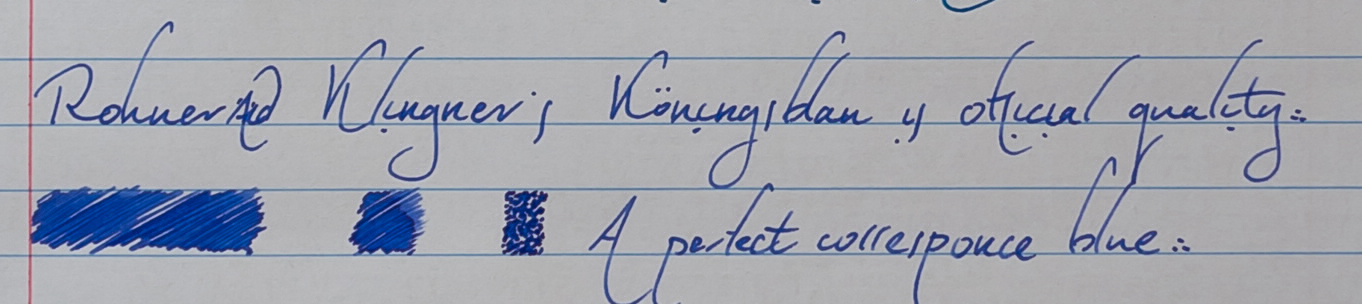 Rohrer and Klingner's Köningsblau is official quality.
A perfect corresponce blue.